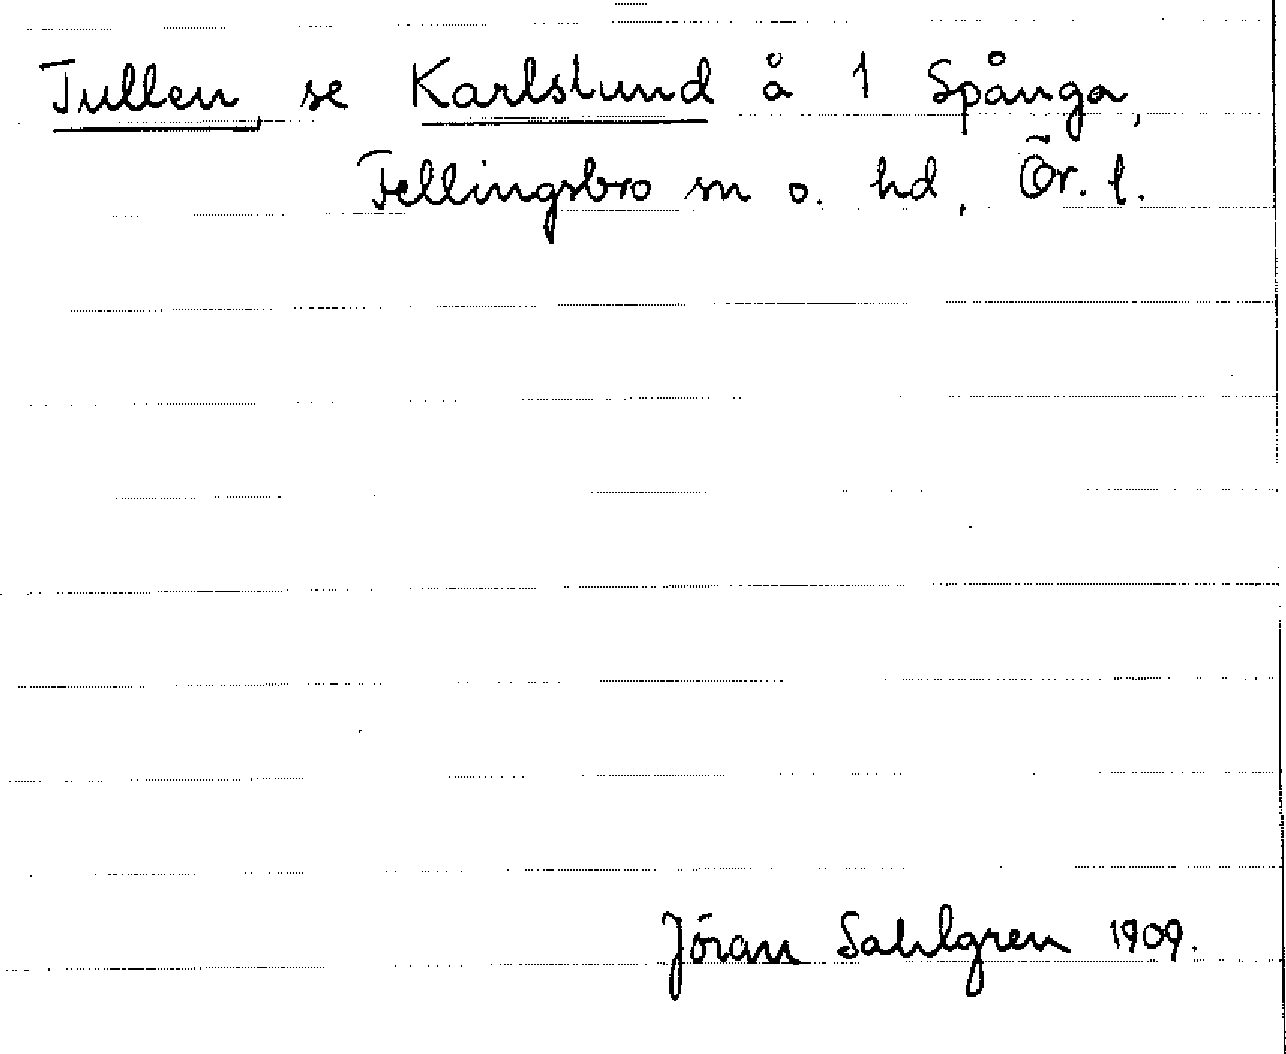 Tullen, se Karlslund å 1 Spånga,
Fellingsbro sn o. hd, Ör. l.
Jöran Sahlgren 1909.